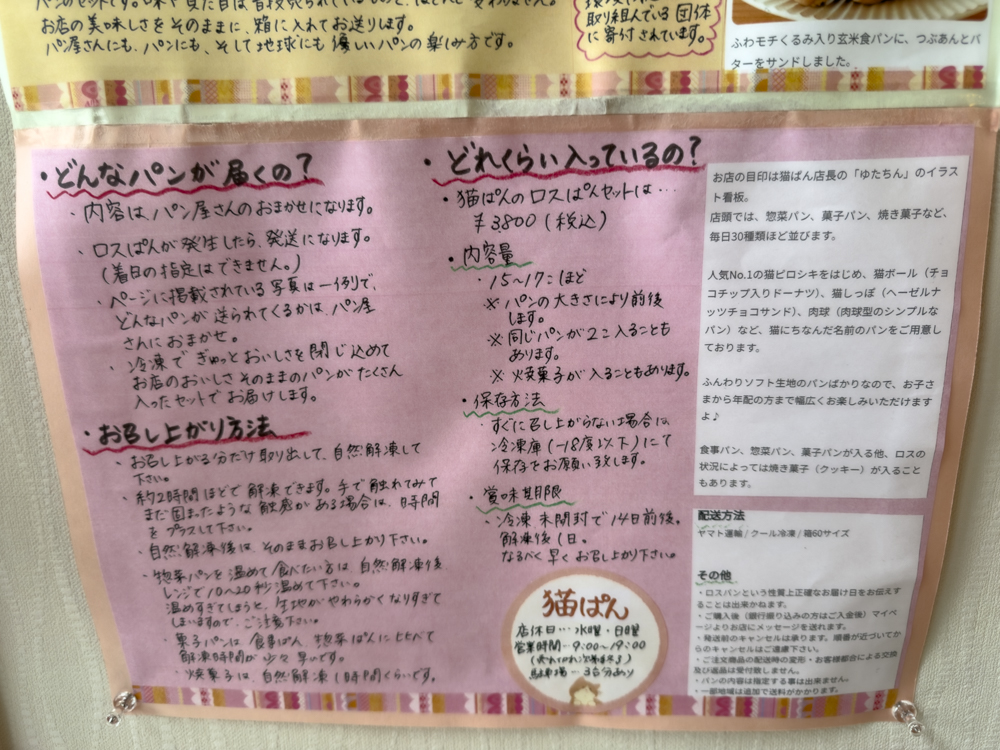 お店の美味しさをそのままに、箱に入れてお送りします。
パン屋さんにも、パンにも、そして地球にも優しいパンの楽しみ方です。
取り組んでいる団体
に寄付されています。
ふわモチくるみ入り玄米食パンに、つぶあんとバ
ターをサンドしました。
・どんなパンが届くの?
・内容は、パン屋さんのおまかせになります。
・ロスぱんが発生したら、発送になります。
(着日の指定はできません。)
・ページに掲載されている写真は一例で、
どんなパンが送られてくるかは、パン屋
さんにおまかせ。
・冷凍でぎゅっとおいしさを閉じ込めて
お店のおいしさそのままのパンがたくさん
入ったセットでお届けします。
・お召し上がり方法
・お召し上がる分だけ取り出して、自然解凍して
下さい。
・約2時間ほどで解凍できます。手で触れてみて
まだ固まったような触感がある場合は、時間
をプラスして下さい。
・自然解凍後は、そのままお召し上がり下さい。
・惣菜パンを温めて食べたい方は、自然解凍後
レンジで10~20秒温めて下さい。
温めすぎてしまうと、生地がやわらかくなりすぎて
しまいますので、ご注意下さい。
・菓子パンは、食事ぱん、惣菜ぱんに比べて
解凍時間が少々早いです。
・焼菓子は、自然解凍1時間くらいです。
・どれくらい入っているの?
・猫ぱんのロスぱんセットは…
¥3,800(税込)
・内容量
・15~17こほど
※パンの大きさにより前後
します。
※同じパンが2こ入ることも
あります。
※焼菓子が入ることもあります。
・保存方法
・すぐに召し上がらない場合は、
冷凍庫(-18度以下)にて
保存をお願い致します。
・賞味期限
・冷凍、未開封で14日前後。
解凍後1日。
なるべく早くお召し上がり下さい。
猫ぱん
店休日…水曜・日曜
営業時間…9:00~19:00
駐車場…3台分あり
お店の目印は猫ぱん店長の「ゆたちん」のイラス
ト看板。
店頭では、惣菜パン、菓子パン、焼き菓子など、
毎日30種類ほど並びます。
人気No.1の猫ピロシキをはじめ、猫ボール(チョ
コチップ入りドーナツ)、猫しっぽ(ヘーゼルナ
ッツチョコサンド)、肉球(肉球型のシンプルな
パン)など、猫にちなんだ名前のパンをご用意し
ております。
ふんわりソフト生地のパンばかりなので、お子さ
まから年配の方まで幅広くお楽しみいただけます
よ♪
食事パン、惣菜パン、菓子パンが入る他、ロスの
状況によっては焼き菓子(クッキー)が入ること
もあります。
配送方法
ヤマト運輸 / クール冷凍 / 箱60サイズ
その他
・ロスパンという性質上正確なお届け日をお伝えす
ることは出来かねます。
・ご購入後(銀行振り込みの方はご入金後)マイペ
ージよりお店にメッセージを送れます。
・発送前のキャンセルは承ります。順番が近づいてか
らのキャンセルはご遠慮下さい。
・ご注文商品の配送時の変形・お客様都合による交換
及び返品は受付致しません。
・パンの内容は指定する事は出来ません。
・一部地域は追加で送料がかかります。